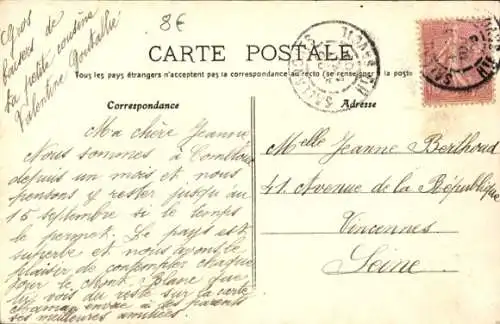 Gros
baisers de
ta petite cousine
Valentine
8€
CARTE POSTALE
Tous les pays étrangers n'acceptent pas la correspondance au recto (se renseigner à la poste)
Correspondance
Adresse
Ma chère Jeanne
Nous sommes à Combloux
depuis un mois et nous
pensons y rester jusqu'au
15 septembre si le temps
le permet. Le pays est
superbe et nous avons le
plaisir de contempler chaque
jour le Mont Blanc que
tu vois du reste sur la carte
maman envoie à tes parents
ses meilleures amitiés.
Melle Jeanne Berthoud
41 Avenue de la République
Vincennes
Seine